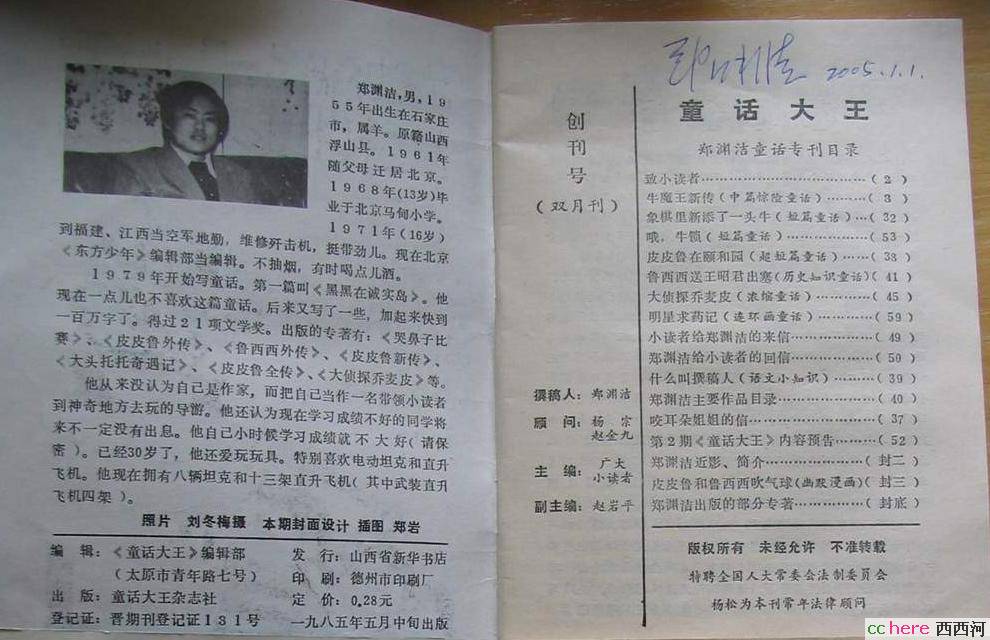 郑渊洁，男，19
55年出生在石家庄
市，属羊。原籍山西
浮山县。1961年
随父母迁居北京。
1968年(13岁)毕
业于北京马甸小学。
1971年(16岁)
到福建、江西当空军地勤，维修歼击机，挺带劲儿。现在北京
《东方少年》编辑部当编辑。不抽烟，有时喝点儿酒。
1979年开始写童话。第一篇叫《黑黑在诚实岛》。他
现在一点儿也不喜欢这篇童话。后来又写了一些，加起来快到
一百万字了。得过21项文学奖。出版的专著有：《哭鼻子比
赛》、《皮皮鲁外传》、《鲁西西外传》、《皮皮鲁新传》、
《大头托托奇遇记》、《皮皮鲁全传》、《大侦探乔麦皮》等。
他从来没认为自己是作家，而把自己当作一名带领小读者
到神奇地方去玩的导游。他还认为现在学习成绩不好的同学将
来不一定没有出息。他自己小时候学习成绩就不大好（请保
密）。已经30岁了，他还爱玩玩具。特别喜欢电动坦克和直升
飞机。他现在拥有八辆坦克和十三架直升飞机（其中武装直升
飞机四架）。
照片 刘冬梅摄 本期封面设计 插图 郑岩
编 辑：《童话大王》编辑部
（太原市青年路七号）
出 版：童话大王杂志社
登记证：晋期刊登记证131号
发 行：山西省新华书店
印 刷：德州市印刷厂
定 价：0.28元
一九八五年五月中旬出版
郑渊洁 2005.1.1.
创刊号
（双月刊）
撰稿人：郑渊洁
顾 问：杨 宗
赵金九
主 编：广大
小读者
副主编：赵岩平
童话大王
郑渊洁童话专刊目录
致小读者……………………（2）
牛魔王新传（中篇惊险童话）………（3）
象棋里新添了一头牛（短篇童话）…（32）
哦，牛锁（短篇童话）……………（53）
皮皮鲁在颐和园（超短篇童话）……（38）
鲁西西送王昭君出塞(历史知识童话)（41）
大侦探乔麦皮（浓缩童话）…………（45）
明星求药记（连环画童话）…………（59）
小读者给郑渊洁的来信……………（49）
郑渊洁给小读者的回信……………（50）
什么叫撰稿人（语文小知识）………（39）
郑渊洁主要作品目录………………（40）
咬耳朵姐姐的信……………………（37）
第2期《童话大王》内容预告………（52）
郑渊洁近影、简介…………………（封二）
皮皮鲁和鲁西西吹气球(幽默漫画)（封三）
郑渊洁出版的部分专著……………（封底）
版权所有 未经允许 不准转载
特聘全国人大常委会法制委员会
杨松为本刊常年法律顾问
cchere 西西河